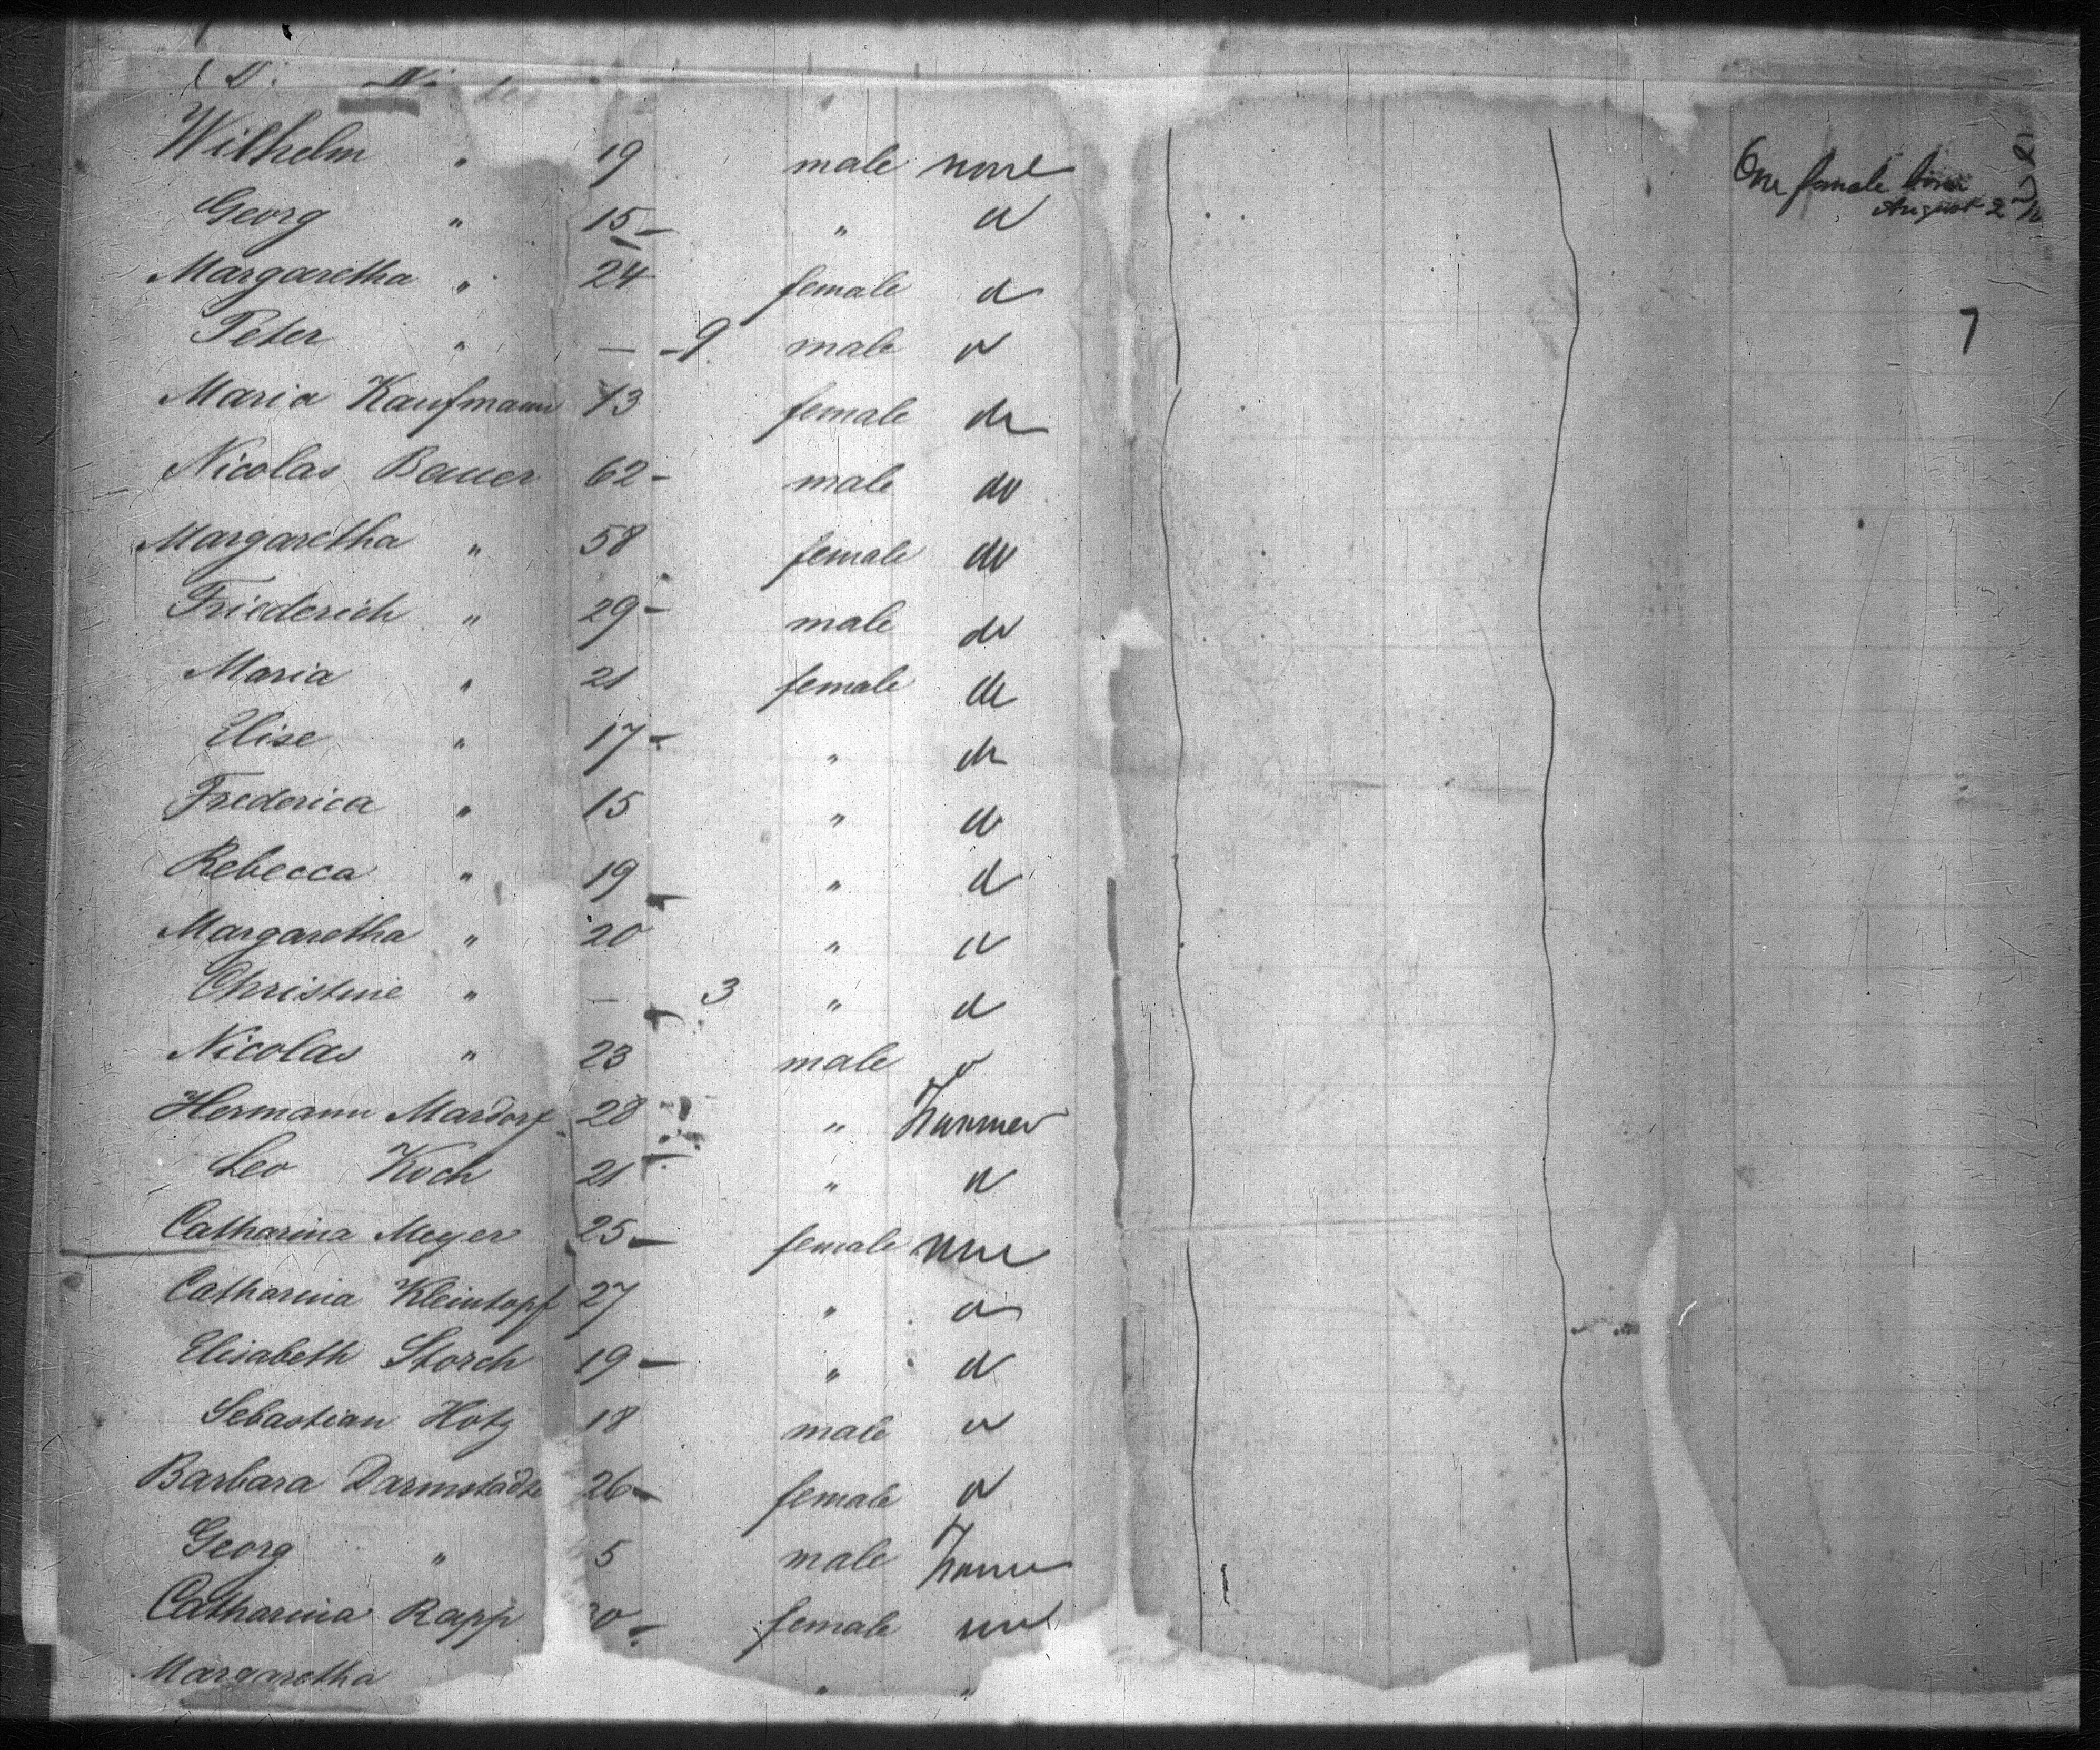 Wilhelm " 19 male none
Georg " 15 - " do
Margaretha " 24 female do
Peter " — - 9 male do
Maria Kaufmann 73 female do
Nicolas Bauer 62 - male do
Margaretha " 58 female do
Friederich " 29 - male do
Maria " 21 female do
Elise " 17 - " do
Frederica " 15 " do
Rebecca " 19 - " do
Margaretha " 20 " do
Christine " — - 3 " do
Nicolas " 23 male do
Hermann Mardorf 28 " Farmer
Leo Koch 21 " do
Catharina Meyer 25 - female none
Catharina Kleintopf 27 " do
Elisabeth Storch 19 - " do
Sebastian Hotz 18 male do
Barbara Darmstädt 26 - female do
Georg " 5 male
Catharina Rapp female none
Margaretha " "
One female born
August 2
7